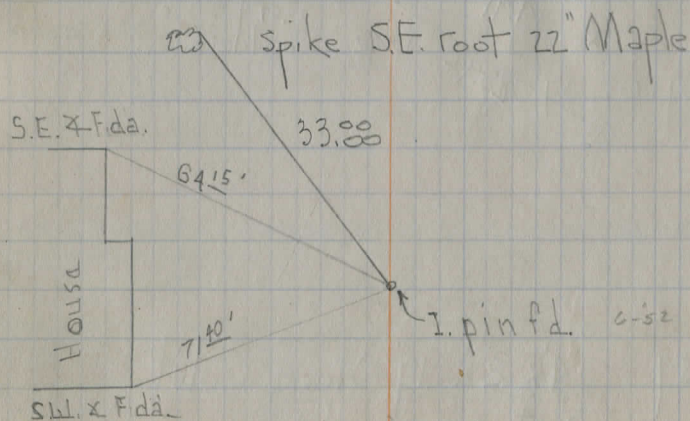 Spike S.E. root 22" Maple
33.00
S.E. ∡ Fda.
64.15'
House
71.40'
I. pin fd. 6-'52
S.W. ∡ Fda.